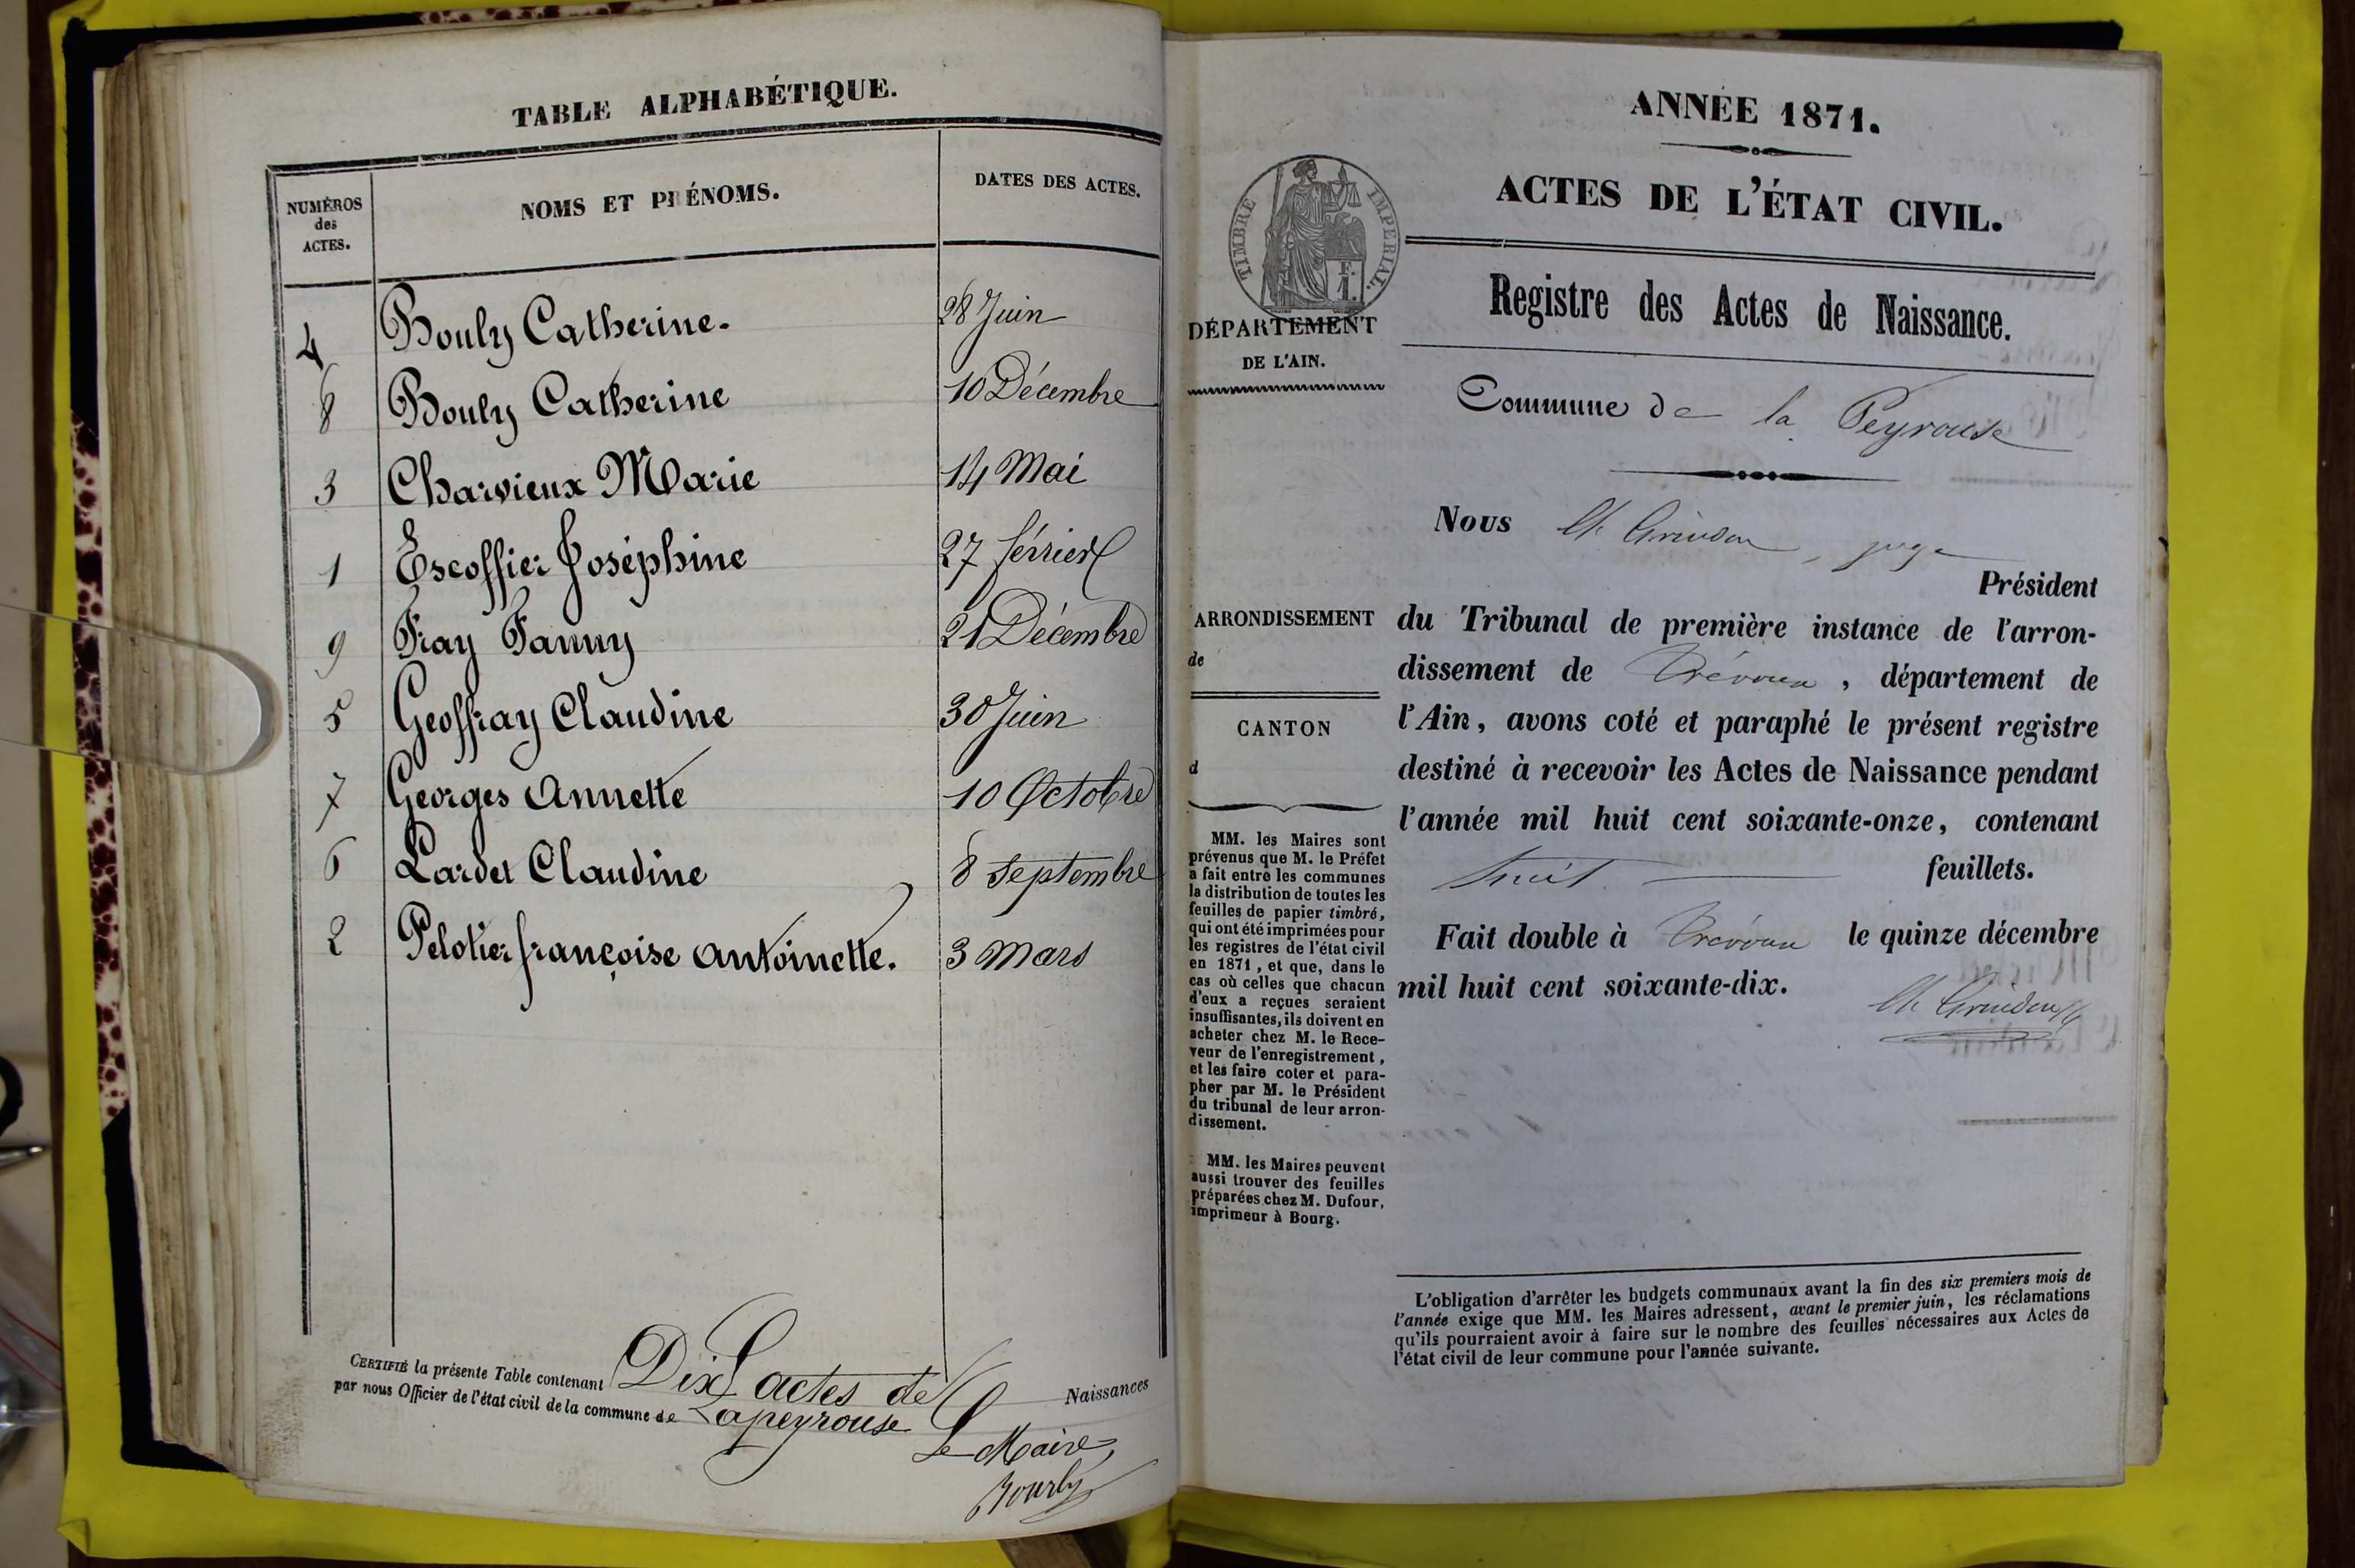 TABLE ALPHABÉTIQUE.
NUMÉROS
des
ACTES.
NOMS ET PRÉNOMS.
DATES DES ACTES.
4 Bouly Catherine. 28 Juin
8 Bouly Catherine 10 Décembre
3 Charvieux Marie 14 Mai
1 Escoffier Joséphine 27 février
9 Fray Fanny 21 Décembre
5 Geoffray Claudine 30 Juin
7 Georges Annette 10 Octobre
6 Lardet Claudine 8 septembre
2 Pelotier françoise Antoinette. 3 Mars
CERTIFIÉ la présente Table contenant Dix actes de Naissances
par nous Officier de l'état civil de la commune de Lapeyrouse
Le Maire
Bouly
ANNÉE 1871.
ACTES DE L'ÉTAT CIVIL.
TIMBRE IMPERIAL.
F.
1.
DÉPARTEMENT
DE L'AIN.
Registre des Actes de Naissance.
Commune de la Peyrouse
Nous Ch. Grindon, juge
Président
ARRONDISSEMENT
de
CANTON
d
du Tribunal de première instance de l'arron-
dissement de Trévoux, département de
l'Ain, avons coté et paraphé le présent registre
destiné à recevoir les Actes de Naissance pendant
l'année mil huit cent soixante-onze, contenant
huit feuillets.
Fait double à Trévoux le quinze décembre
mil huit cent soixante-dix.
Ch. Grindon
MM. les Maires sont
prévenus que M. le Préfet
a fait entre les communes
la distribution de toutes les
feuilles de papier timbré,
qui ont été imprimées pour
les registres de l'état civil
en 1871, et que, dans le
cas où celles que chacun
d'eux a reçues seraient
insuffisantes, ils doivent en
acheter chez M. le Rece-
veur de l'enregistrement,
et les faire coter et para-
pher par M. le Président
du tribunal de leur arron-
dissement.
MM. les Maires peuvent
aussi trouver des feuilles
préparées chez M. Dufour,
imprimeur à Bourg.
L'obligation d'arrêter les budgets communaux avant la fin des six premiers mois de
l'année exige que MM. les Maires adressent, avant le premier juin, les réclamations
qu'ils pourraient avoir à faire sur le nombre des feuilles nécessaires aux Actes de
l'état civil de leur commune pour l'année suivante.